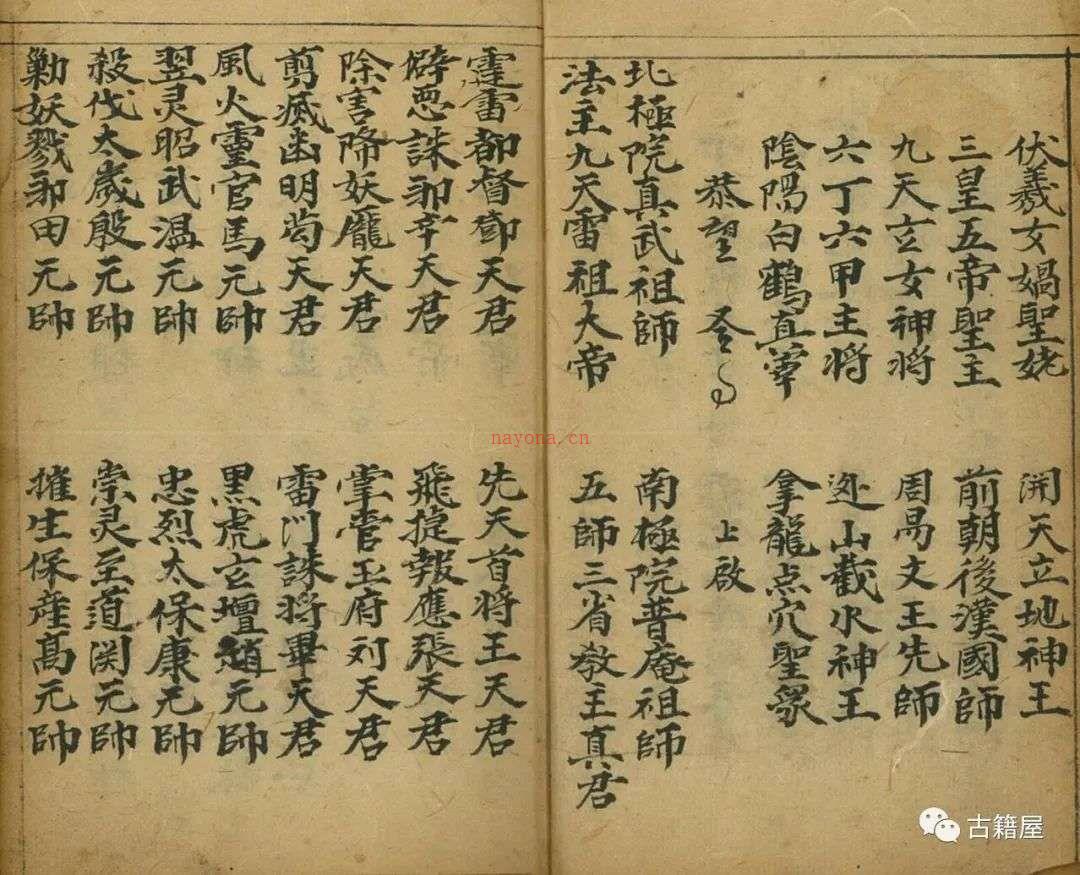 伏羲女媧聖姥 開天立地神王
三皇五帝聖主 前朝後漢國師
九天玄女神将 周昜文王先師
六丁六甲主将 山截水神王
陰陽白鶴真宰 拿龍点穴聖衆
恭望 上啟
北極院真武祖師 南極院普庵祖師
法主九天雷祖大帝 五師三省教主真君
霆雷都督鄧天君 先天首将王天君
僻悪誅邪辛天君 飛捷報應張天君
除害降妖龐天君 掌管玉府刘天君
剪滅幽明苟天君 雷门誅将畢天君
風火靈官馬元帥 黑虎玄壇趙元帥
翌灵昭武温元帥 忠烈太保康元帥
殺伐太歲殷元帥 崇灵至道関元帥
勦妖戮邪田元帥 摧生保産高元帥
nayona.cn
古籍屋